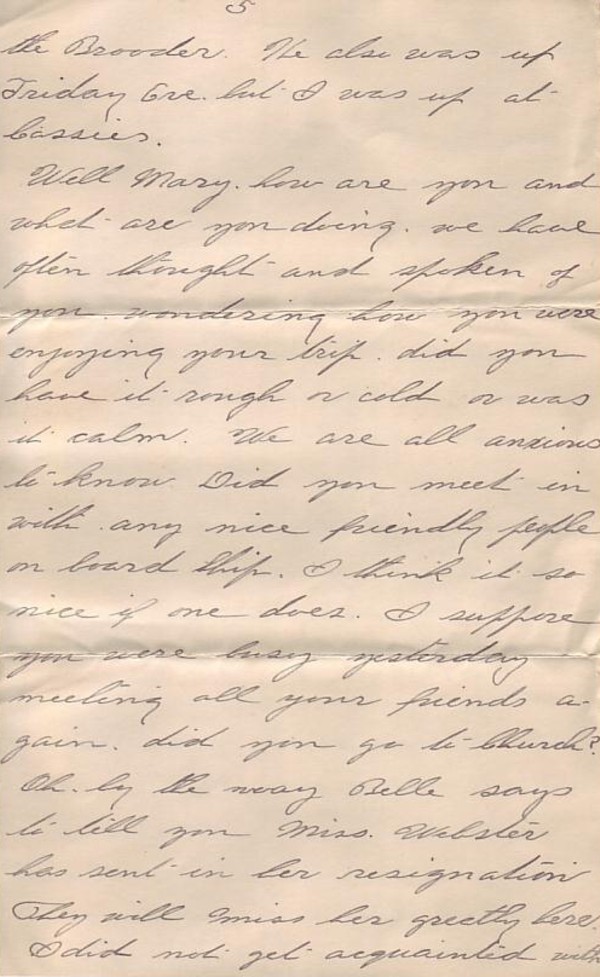 5
the Brooder. He also was up
Friday Eve. but I was up at
Cassies.
Well Mary. how are you and
what are you doing. we have
often thought and spoken of
you. wondering how you were
enjoying your trip. did you
have it rough or cold or was
it calm. We are all anxious
to know Did you meet in
with any nice friendly people
on board ship. I think it so
nice if one does. I suppose
you were busy yesterday
meeting all your friends a-
gain. did you go to Church?
Oh. by the way Belle says
to tell you Miss. Webster
has sent in her resignation
They will miss her greetly here.
I did not get acquainted with